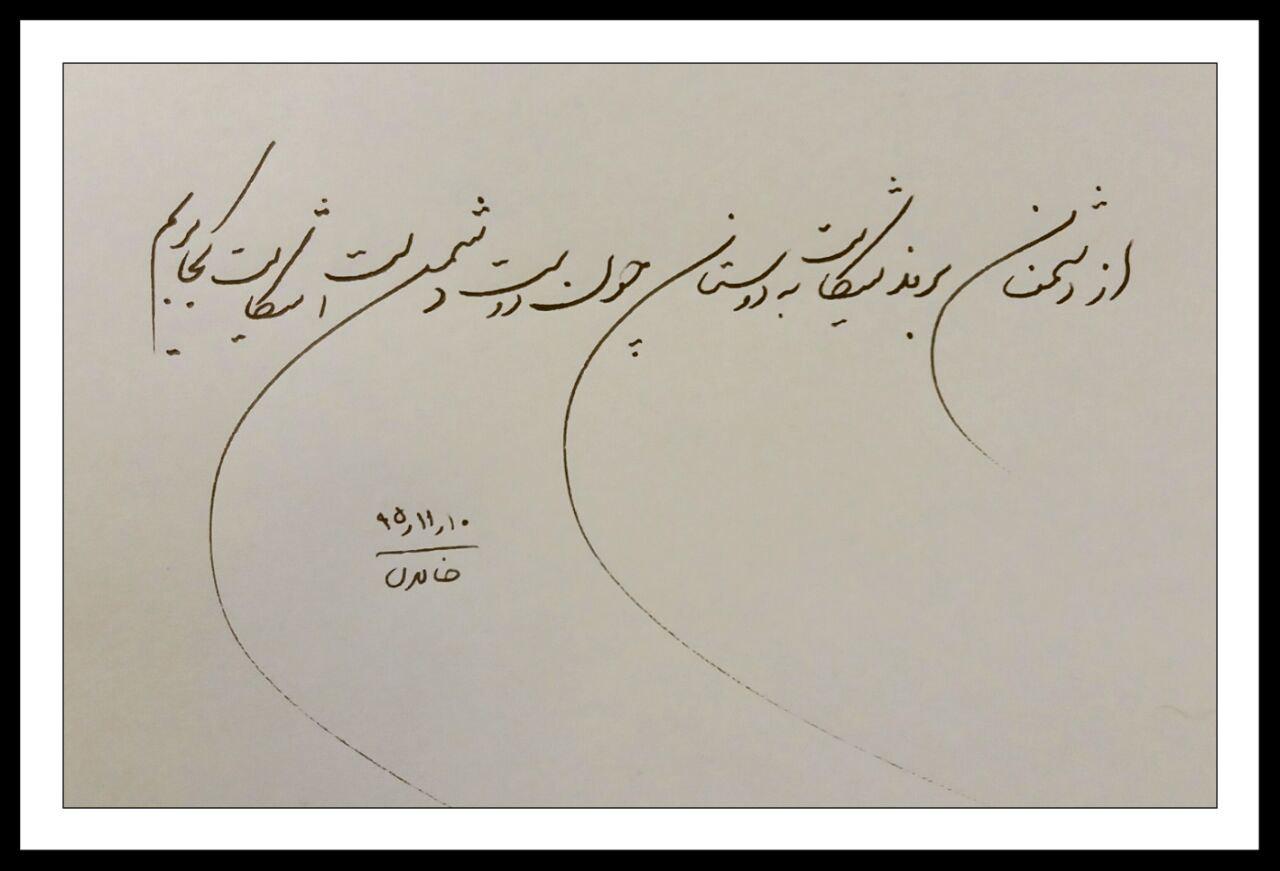 از دشمنان برند شکایت به دوستان چون دوست دشمن است شکایت کجا بریم
۹۵٫۱۱٫۱۰